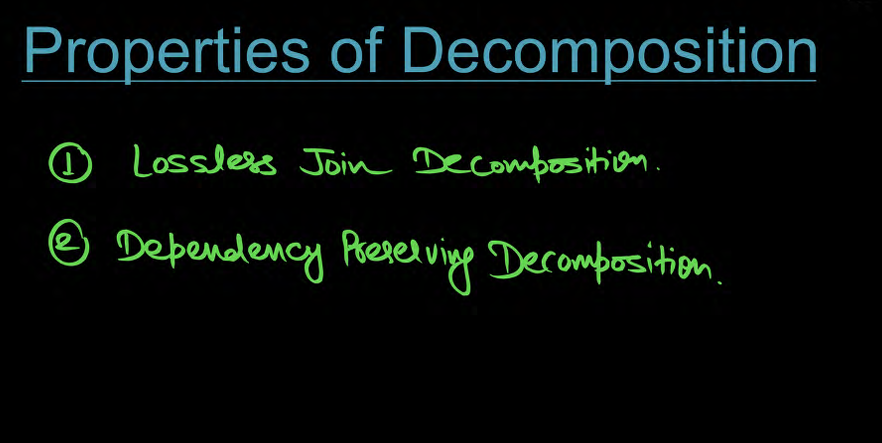 Properties of Decomposition
① Lossless Join Decomposition.
② Dependency Preserving Decomposition.